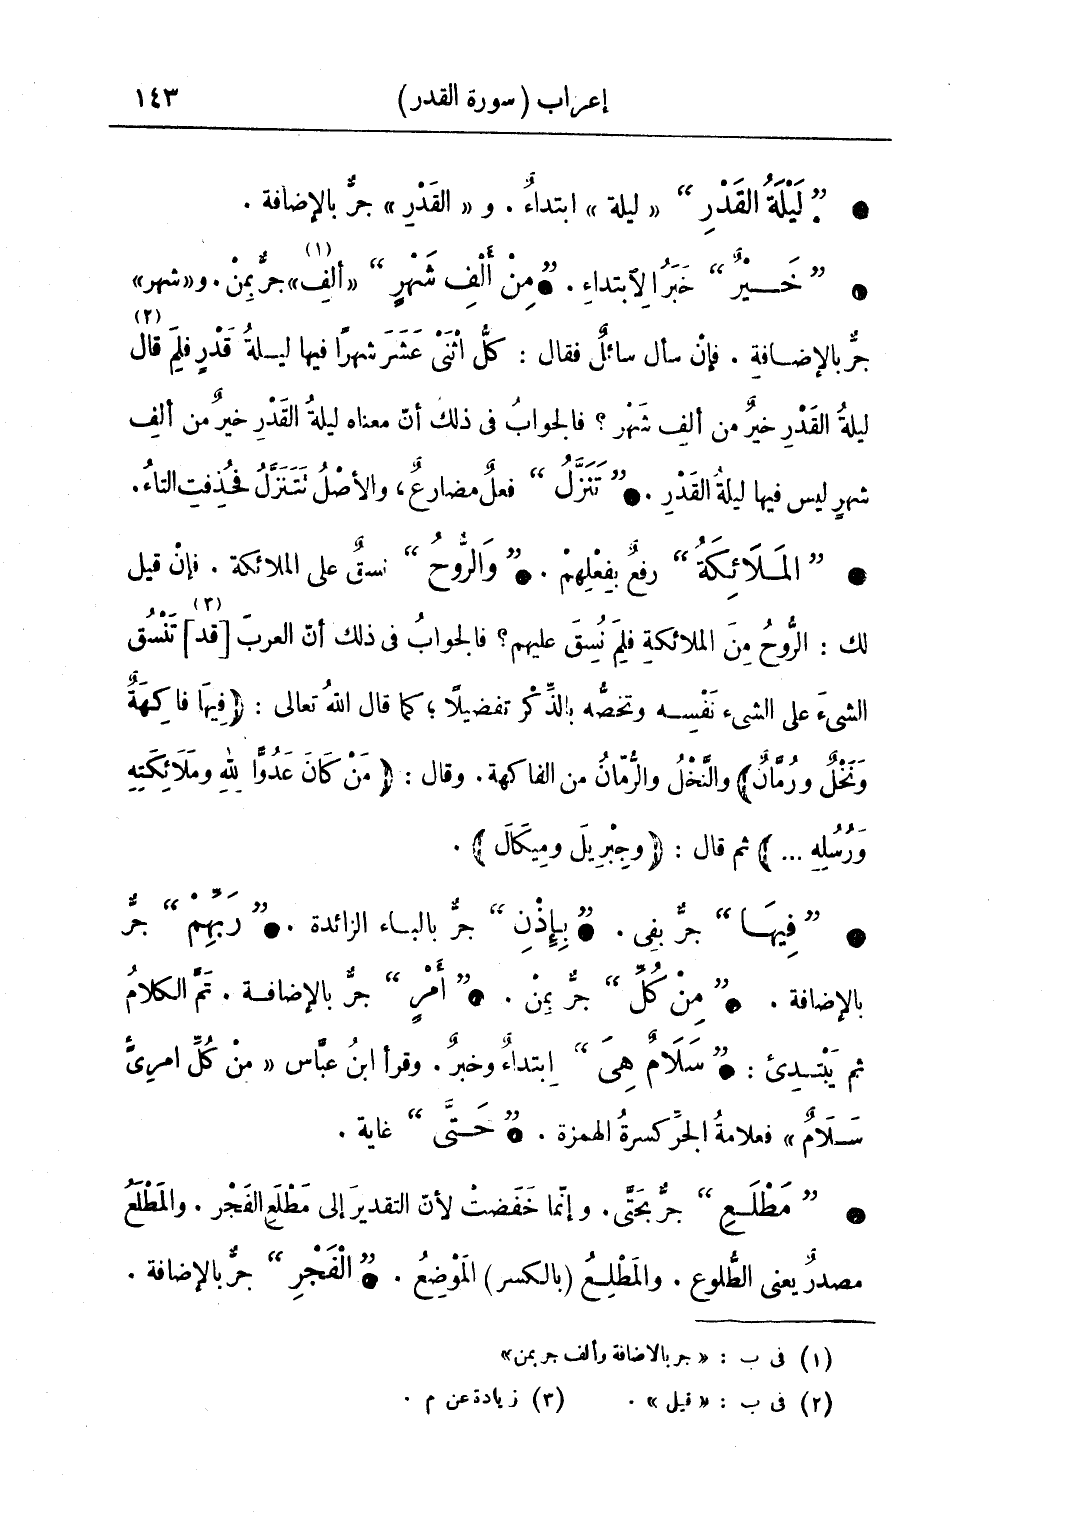 إعراب (سورة القدر) ١٤٣
● ”لَيْلَةُ القَدْرِ“ « ليلة » ابتداءٌ . و « القَدْرِ » جرٌّ بالإضافة .
● ”خَيْرٌ“ خَبَرُ الِابتداءِ . ● ”مِنْ أَلْفِ شَهْرٍ“ «ألفِ»(١) جرٌّ بِمِنْ . و«شهر»
جرٌّ بالإضافةِ . فإنْ سأل سائلٌ فقال : كلُّ اثْنَىْ عَشَرَ شهرًا فيها ليلةُ قَدْرٍ فلِمَ قال(٢)
ليلةُ القَدْرِ خيرٌ من ألفِ شَهْر ؟ فالجوابُ فى ذلك أنّ معناه ليلةُ القَدْرِ خيرٌ من ألفِ
شهرٍ ليس فيها ليلةُ القَدْرِ . ● ”تَنَزَّلُ“ فعلٌ مضارعٌ، والأصْلُ تَتَنَزَّلُ فحُذِفتِ التاءُ .
● ”المَلَائِكَةُ“ رفعٌ بِفِعْلِهِمْ . ● ”وَالرُّوحُ“ نسقٌ على الملائكة . فإنْ قيل
لك : الرُّوحُ مِنَ الملائكةِ فلِمَ نُسِقَ عليهم؟ فالجوابُ فى ذلك أنّ العربَ [قد](٣) تَنْسُق
الشىءَ على الشىء نَفْسِه وتخصُّه بالذِّكْرِ تفضيلًا ؛ كما قال اللهُ تعالى : ﴿فِيهَا فَاكِهَةٌ
وَنَخْلٌ ورُمَّانٌ﴾ والنَّخْلُ والرُّمّانُ من الفاكهة . وقال : ﴿ مَنْ كَانَ عَدُوًّا لِلهِ ومَلَائِكَتِهِ
وَرُسُلِهِ ... ﴾ ثم قال : ﴿ وجِبْرِيلَ ومِيكَالَ ﴾ .
● ”فِيهَا“ جرٌّ بفِى . ● ”بِإِذْنِ“ جرٌّ بالباء الزائدة . ● ”رَبِّهِمْ“ جرٌّ
بالإضافة . ● ”مِنْ كُلِّ“ جرٌّ بِمِنْ . ● ”أَمْرٍ“ جرٌّ بالإضافة . تَمَّ الكلامُ
ثم يَبْتَدِئ : ● ”سَلَامٌ هِىَ“ اِبتداءٌ وخبرٌ . وقرأ ابنُ عبَّاس « مِنْ كُلِّ امرِئٍ
سَلَامٌ » فعلامةُ الجرِّ كسرةُ الهمزة . ● ”حَتَّى“ غاية .
● ”مَطْلَعِ“ جرٌّ بحَتَّى . وإنّما خَفَضتْ لأنّ التقديرَ إلى مَطْلَعِ الفَجْر . والمَطْلَعُ
مصدرٌ يعنى الطُّلوع . والمَطْلِعُ (بالكسر) المَوْضِعُ . ● ”الْفَجْرِ“ جرٌّ بالإضافة .
(١) فى ب : « جر بالاضافة وألف جر بمن»
(٢) فى ب : « قيل » . (٣) زيادة عن م .